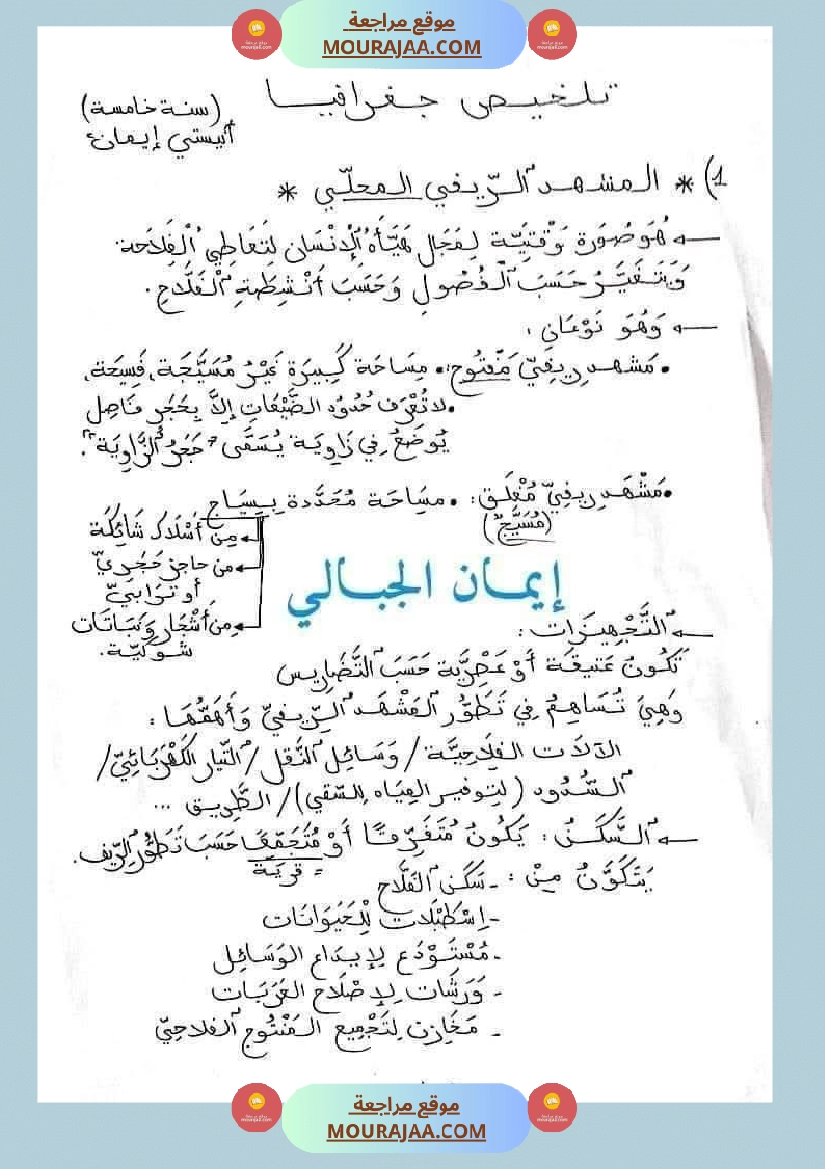 موقع مراجعة
MOURAJAA.COM
تلخيص جغرافيا
(سنة خامسة)
أنيستي إيمان
1) * المشهد الرّيفي المحلّي *
← هُوَ صُورَة وَقْتِيَّة لِمَجَال هَيَّأَهُ الإِنْسَان لِتَعَاطِي الْفِلَاحة
وَيَتَغَيَّرُ حَسَبَ الْفُصُولِ وَحَسَبَ أَنْشِطَةِ الْفَلَّاحِ.
← وَهُوَ نَوْعَانِ:
• مَشهد رِيفِيّ مَفْتُوح: • مِسَاحَة كَبِيرَة غَيْرُ مُسَيَّجَة، فَسِيحَة،
• لا تُعْرَف حُدُودُ الضَّيْعَاتِ إِلَّا بِحَجَرٍ فَاصِل
يُوضَعُ فِي زَاوِيَة يُسَمَّى "حَجَرُ الزَّاوِيَة".
• مَشْهَد رِيفِيّ مُغْلَق: • مسَاحَة مُحَدَّدة بِسِيَاج
(مُسَيَّج)
مِن أَسْلَاك شَائِكَة
من حاجز حَجَرِيّ
أو تُرَابِيّ
من أَشْجَار وَنَبَاتَات
شَوْكِيَّة.
إيمان الجبالي
← التَّجْهِيزَات:
تَكُونُ عَتِيقَة أَوْ عَصْرِيَّة حَسَبَ التَّضَارِيس
وَهِيَ تُسَاهِمُ فِي تَطَوُّرِ المَشْهَد الرِّيفِيّ وَأَهَمُّهَا:
الآلَات الفِلَاحِيَّة / وَسَائِل النَّقل / التّيار الكَهْرَبَائِيّ /
السُّدُود (لتوفير المِيَاه للسّقي) / الطَّرِيق ...
← السَّكَنُ: يَكُونُ مُتَفَرِّقًا أَوْ مُتَجَمِّعًا حَسَبَ تَطَوُّر الرِّيف.
= قريَة
يَتَكَوَّنُ مِنْ: - سَكَن الفَلَّاح
- اِسْطَبْلَات لِلْحَيَوَانَات
- مُسْتَوْدَع لإيدَاع الوَسَائِل
- وَرَشَات لِإصْلَاح العَرَبَات
- مَخَازِن لِتَجْمِيع المَنْتُوج الفلاحِيّ
موقع مراجعة
MOURAJAA.COM